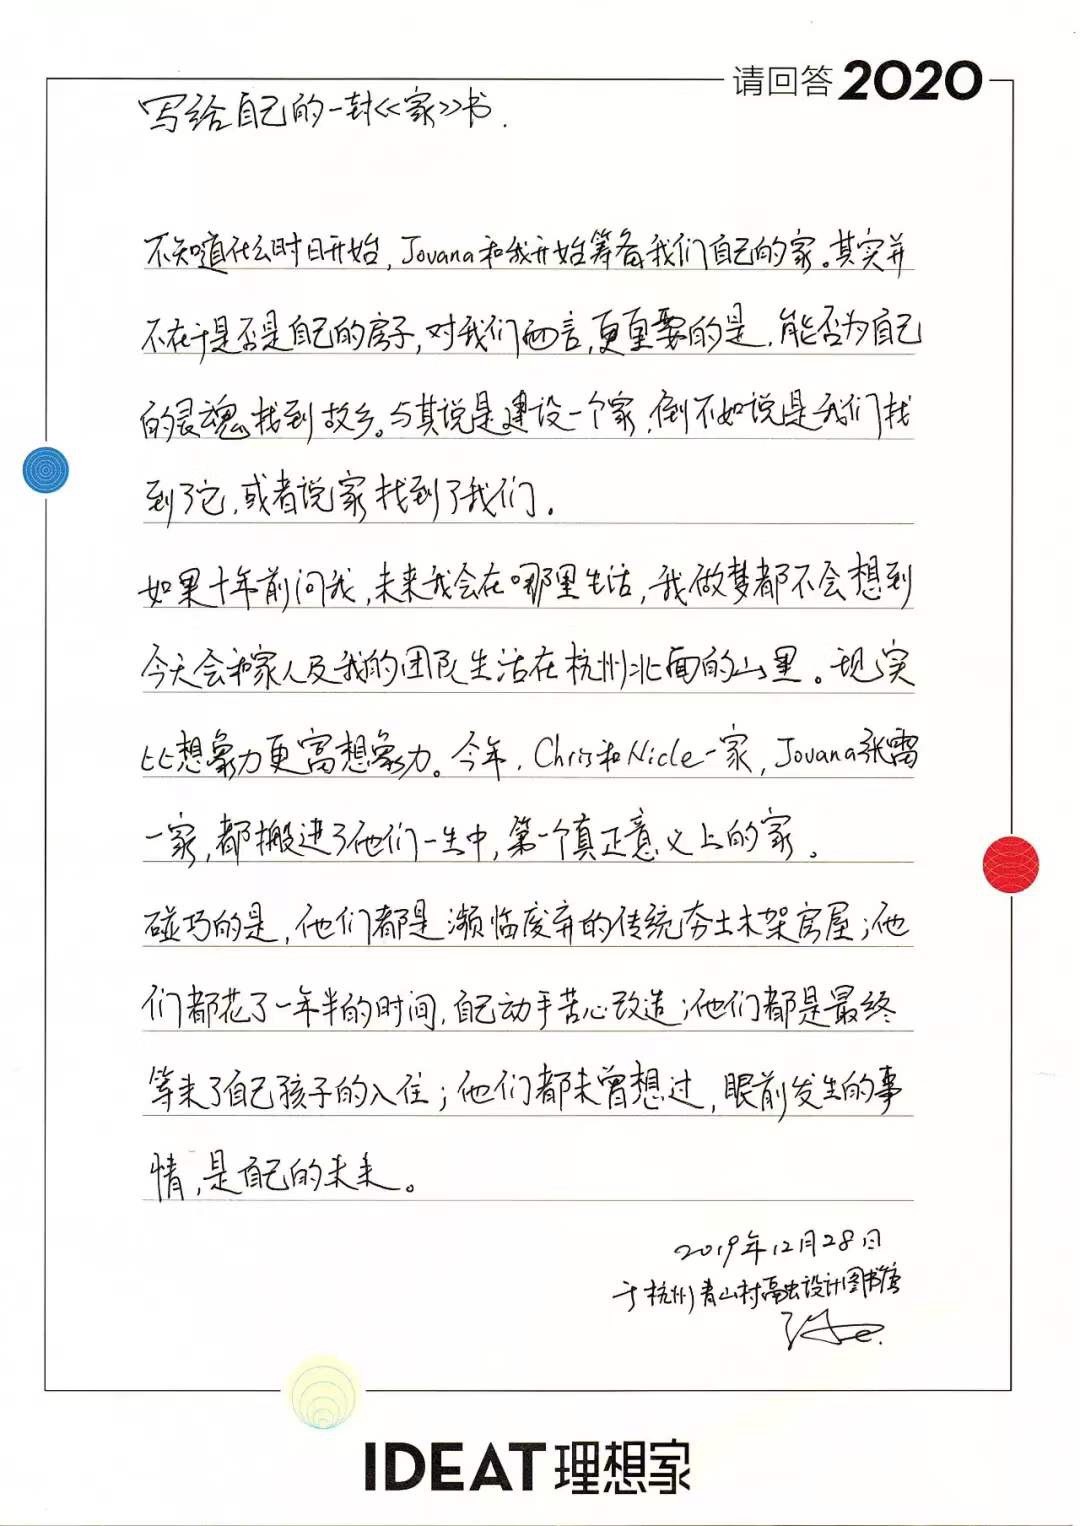 请回答2020
写给自己的一封《家》书.
不知道什么时日开始,Jovana和我开始筹备我们自己的家。其实并
不在于是否是自己的房子,对我们而言,更重要的是,能否为自己
的灵魂找到故乡。与其说是建设一个家,倒不如说是我们找
到了它,或者说家找到了我们。
如果十年前问我,未来我会在哪里生活,我做梦都不会想到
今天会和家人及我的团队生活在杭州北面的山里。现实
比想象力更富想象力。今年,Chris和Nicle一家,Jovana张雷
一家,都搬进了他们一生中,第一个真正意义上的家。
碰巧的是,他们都是濒临废弃的传统夯土木架房屋;他
们都花了一年半的时间,自己动手苦心改造;他们都是最终
等来了自己孩子的入住;他们都未曾想过,眼前发生的事
情,是自己的未来。
2019年12月28日
于杭州青山村融设计图书馆
IDEAT理想家